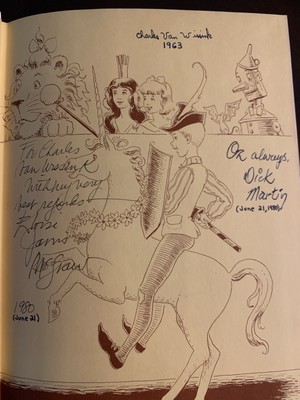 Charles Van Wissink
1963
For Charles
Van Wissink
With my very
best regards
Eloise
Jarvis
McGraw
1980
(June 21)
Oz always,
Dick
Martin
(June 21, 1980)